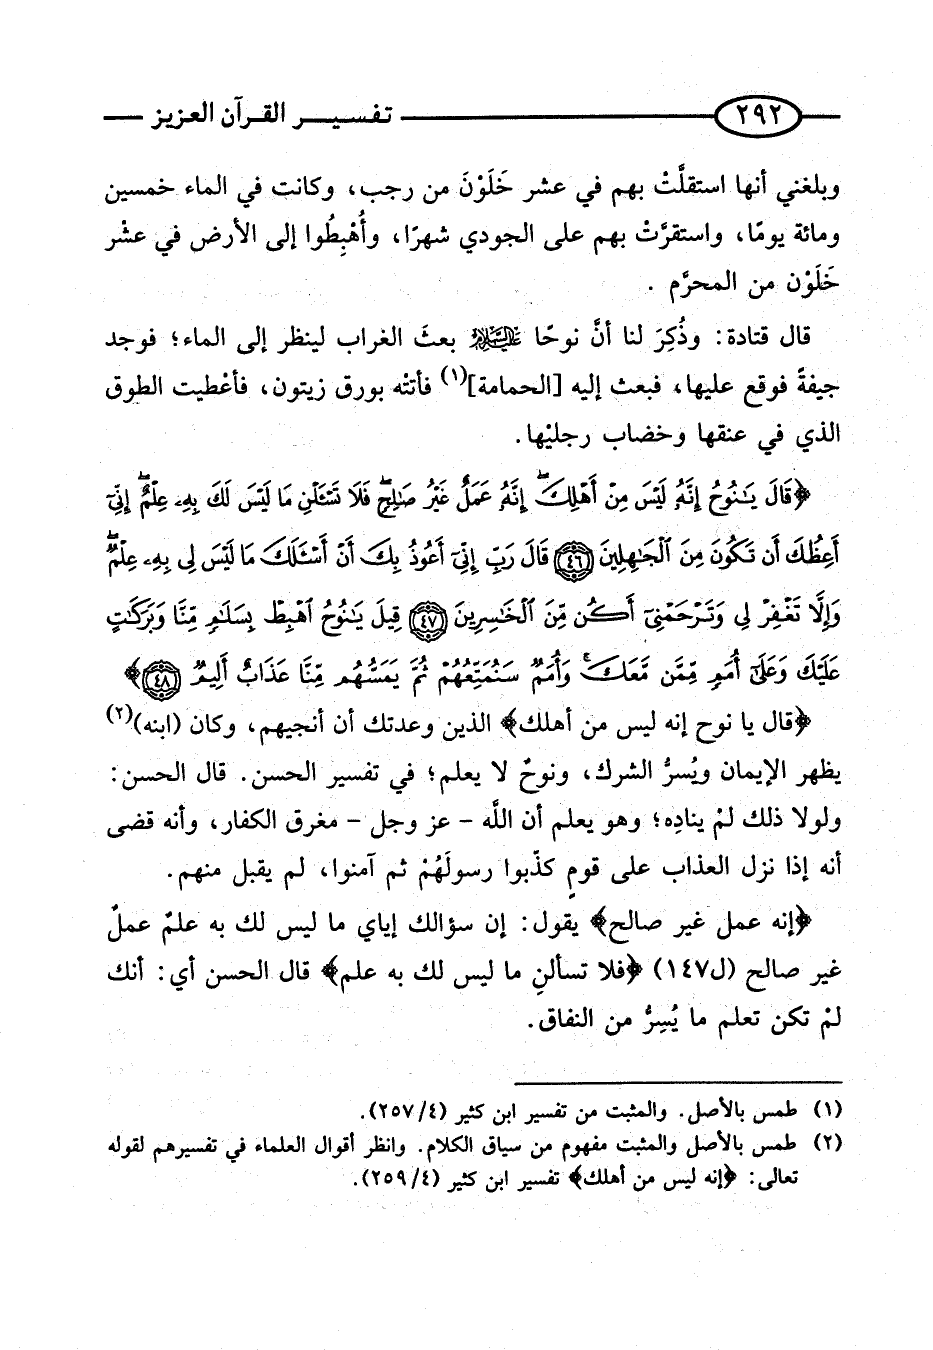 ٢٩٢ تفسير القرآن العزيز
وبلغني أنها استقلَّتْ بهم في عشر خَلَوْنَ من رجب، وكانت في الماء خمسين
ومائة يومًا، واستقرَّتْ بهم على الجودي شهرًا، وأُهْبِطُوا إلى الأرض في عشْر
خَلَوْن من المحرَّم .
قال قتادة: وذُكِرَ لنا أنَّ نوحًا عليه السلام بعثَ الغراب لينظر إلى الماء؛ فوجد
جيفةً فوقع عليها، فبعث إليه [الحمامة](١) فأتتْه بورق زيتون، فأعْطيت الطوق
الذي في عنقها وخضاب رجليْها.
﴿قَالَ يَٰنُوحُ إِنَّهُۥ لَيْسَ مِنْ أَهْلِكَۖ إِنَّهُۥ عَمَلٌ غَيْرُ صَٰلِحٖۖ فَلَا تَسْـَٔلْنِ مَا لَيْسَ لَكَ بِهِۦ عِلْمٌۖ إِنِّيٓ
أَعِظُكَ أَن تَكُونَ مِنَ ٱلْجَٰهِلِينَ ٤٦ قَالَ رَبِّ إِنِّيٓ أَعُوذُ بِكَ أَنْ أَسْـَٔلَكَ مَا لَيْسَ لِي بِهِۦ عِلْمٌۖ
وَإِلَّا تَغْفِرْ لِي وَتَرْحَمْنِيٓ أَكُن مِّنَ ٱلْخَٰسِرِينَ ٤٧ قِيلَ يَٰنُوحُ ٱهْبِطْ بِسَلَٰمٖ مِّنَّا وَبَرَكَٰتٍ
عَلَيْكَ وَعَلَىٰٓ أُمَمٖ مِّمَّن مَّعَكَۚ وَأُمَمٌ سَنُمَتِّعُهُمْ ثُمَّ يَمَسُّهُم مِّنَّا عَذَابٌ أَلِيمٌ ٤٨﴾
﴿قال يا نوح إنه ليس من أهلك﴾ الذين وعدتك أن أنجيهم، وكان (ابنه)(٢)
يظهر الإيمان ويُسرُّ الشرك، ونوحٌ لا يعلم؛ في تفسير الحسن. قال الحسن:
ولولا ذلك لمْ ينادِه؛ وهو يعلم أن اللَّه - عز وجل - مغرق الكفار، وأنه قضى
أنه إذا نزل العذاب على قومٍ كذّبوا رسولَهُمْ ثم آمنوا، لم يقبل منهم.
﴿إنه عمل غير صالح﴾ يقول: إن سؤالك إياي ما ليس لك به علمٌ عملٌ
غير صالح (ل١٤٧) ﴿فلا تسألنِ ما ليس لك به علم﴾ قال الحسن أي: أنك
لمْ تكن تعلم ما يُسِرُّ من النفاق.
(١) طمس بالأصل. والمثبت من تفسير ابن كثير (٢٥٧/٤).
(٢) طمس بالأصل والمثبت مفهوم من سياق الكلام. وانظر أقوال العلماء في تفسيرهم لقوله
تعالى: ﴿إنه ليس من أهلك﴾ تفسير ابن كثير (٢٥٩/٤).